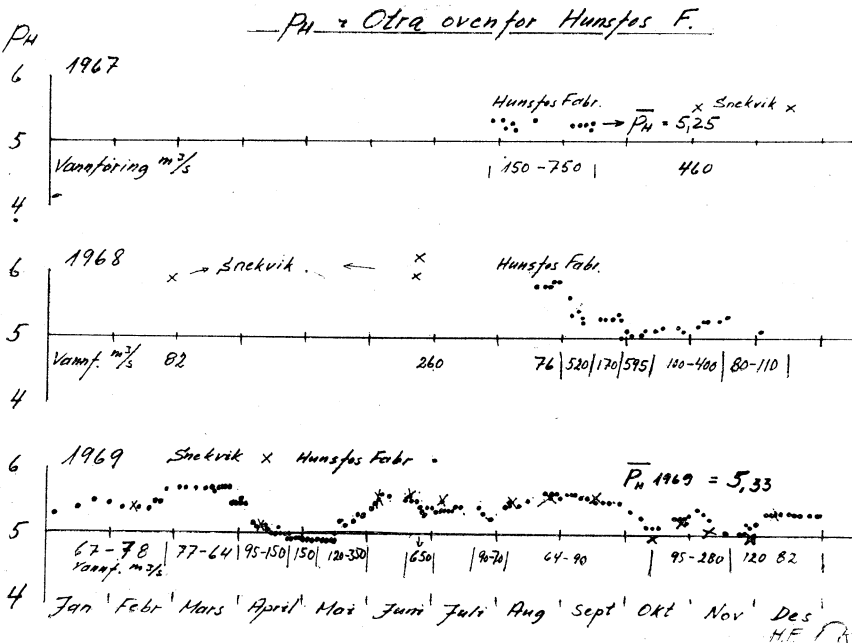 pH i Otra ovenfor Hunsfos F.
pH
6 1967
Hunsfos Fabr. x Snekvik x
→ pH = 5,25
5
Vannföring m³/s | 150-750 | 460
4
6 1968
x → Snekvik ← Hunsfos Fabr.
5
Vannf. m³/s 82 260 76 | 520 | 170 | 595 | 100-400 | 80-110 |
4
6 1969 Snekvik x Hunsfos Fabr •
pH 1969 = 5,33
5
67-78 | 77-64 | 95-150 | 150 | 120-350 | 650 | 90-70 | 64-90 | 95-280 | 120 82 |
Vannf. m³/s
4
Jan Febr Mars April Mai Juni Juli Aug Sept Okt Nov Des
H.F.